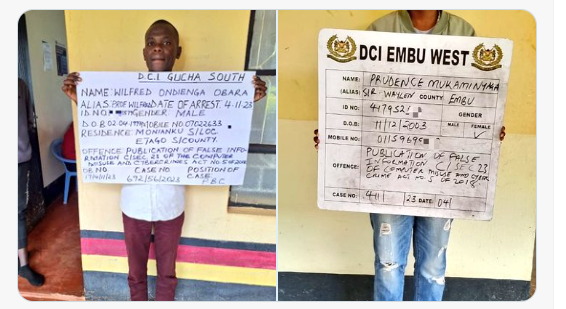 D.C.I GUCHA SOUTH
NAME: WILFRED ONDIENGA OBARA
ALIAS: PROF WILFRED DATE OF ARREST. 4-11-23
ID NO. GENDER: MALE
D.O.B 02-04 MOBILE NO. 07022633
RESIDENCE: MONIANKU S/LOC
ETAGO S/COUNTY.
OFFENCE: PUBLICATION OF FALSE INFO-
RMATION C/SEC 23 OF THE COMPUTER
MISUSE AND CYBERCRIMES ACT NO.5 OF 2018
OB NO. CASE NO. POSITION OF
672/56/2023 CASE
PBC
DCI EMBU WEST
NAME: PRUDENCE MUKAMINYAMA
(ALIAS) SIR WAYLEN COUNTY: EMBU
ID NO: 417952 GENDER
D.O.B: 11/12/2003 MALE FEMALE ✓
MOBILE NO: 01159695
OFFENCE: PUBLICATION OF FALSE
INFORMATION C/SEC 23
OF COMPUTER MISUSE AND CYBER
CRIME ACT NO. 5 OF 2018.
CASE NO: 411 23 DATE: 04/